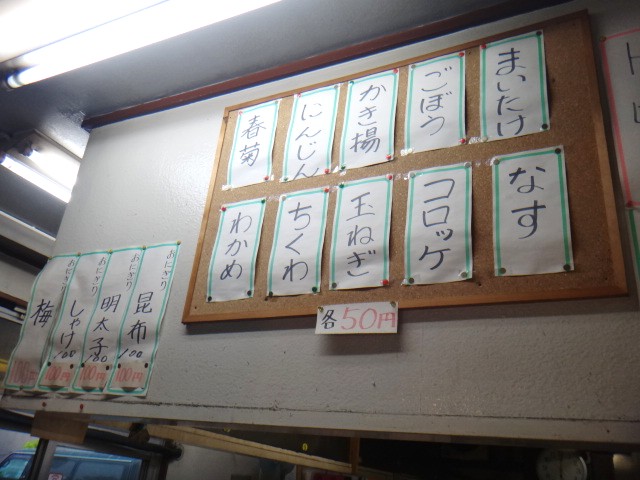 まいたけ
ごぼう
かき揚
にんじん
春菊
なす
コロッケ
玉ねぎ
ちくわ
わかめ
各50円
おにぎり
昆布
100
100円
おにぎり
明太子
100
100円
おにぎり
しゃけ
100
100円
梅